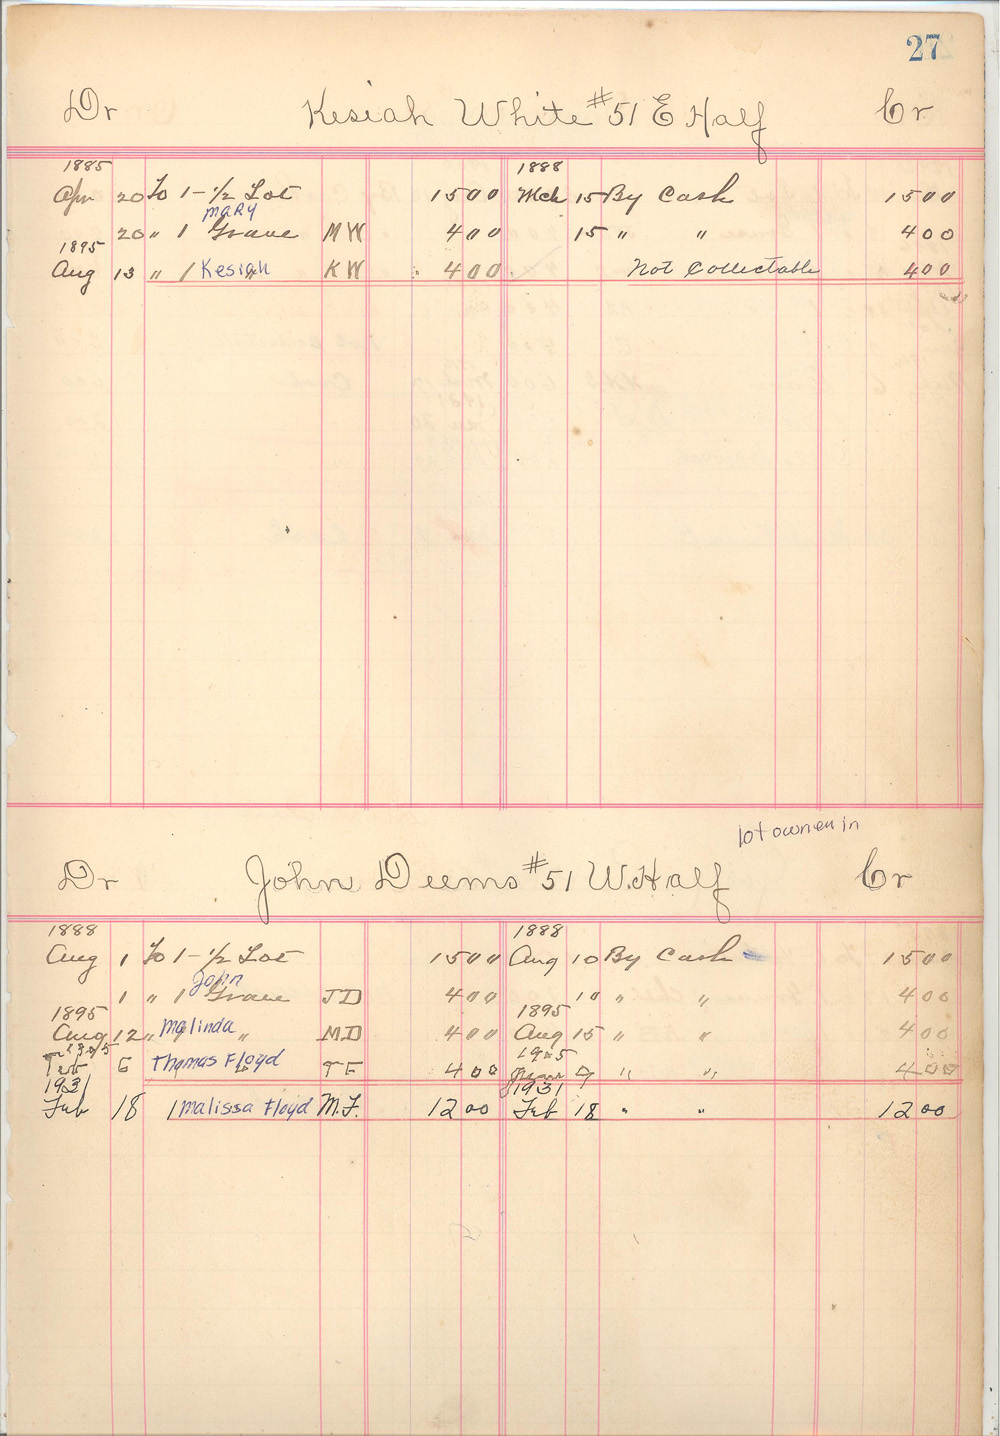 27
Dr Kesiah White #51 E Half Cr
1885 1888
Apr 20 To 1-1/2 Lot 15 00 Mch 15 By Cash 15 00
Mary
20 " 1 Grave M W 4 00 15 " " 4 00
1895
Aug 13 " 1 Kesiah K W 4 00 Not Collectable 4 00
lot owner in
Dr John Deems #51 W. Half Cr
1888 1888
Aug 1 To 1-1/2 Lot 15 00 Aug 10 By Cash 15 00
John
1 " 1 Grave J D 4 00 10 " " 4 00
1895 1895
Aug 12 " Malinda " M D 4 00 Aug 15 " " 4 00
1905
6 Thomas Floyd T F 4 00 " " 4 00
1931 1931
Feb 18 1 Malissa Floyd M.F. 12 00 Feb 18 " " 12 00